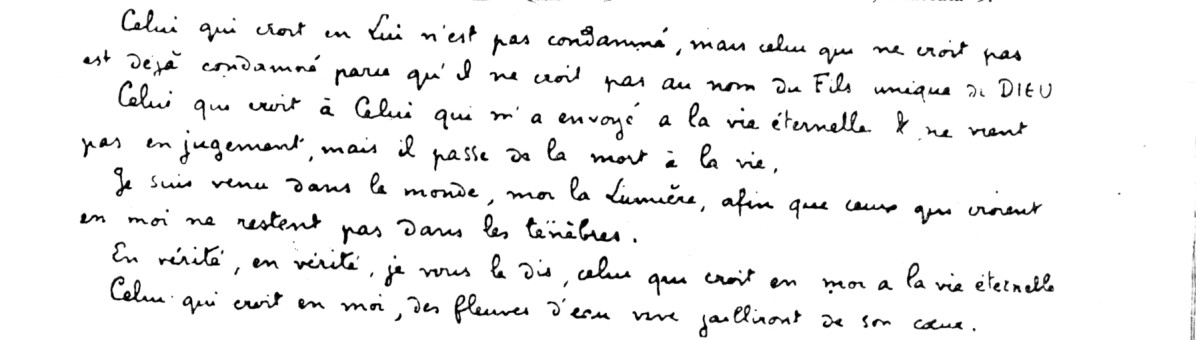 Celui qui croit en Lui n'est pas condamné, mais celui qui ne croit pas
est déjà condamné parce qu'il ne croit pas au nom du Fils unique de DIEU
Celui qui croit à Celui qui m'a envoyé a la vie éternelle & ne vient
pas en jugement, mais il passe de la mort à la vie.
Je suis venu dans le monde, moi la Lumière, afin que ceux qui croient
en moi ne restent pas dans les ténèbres.
En vérité, en vérité, je vous le dis, celui qui croit en moi a la vie éternelle
Celui qui croit en moi, des fleuves d'eau vive jailliront de son cœur.